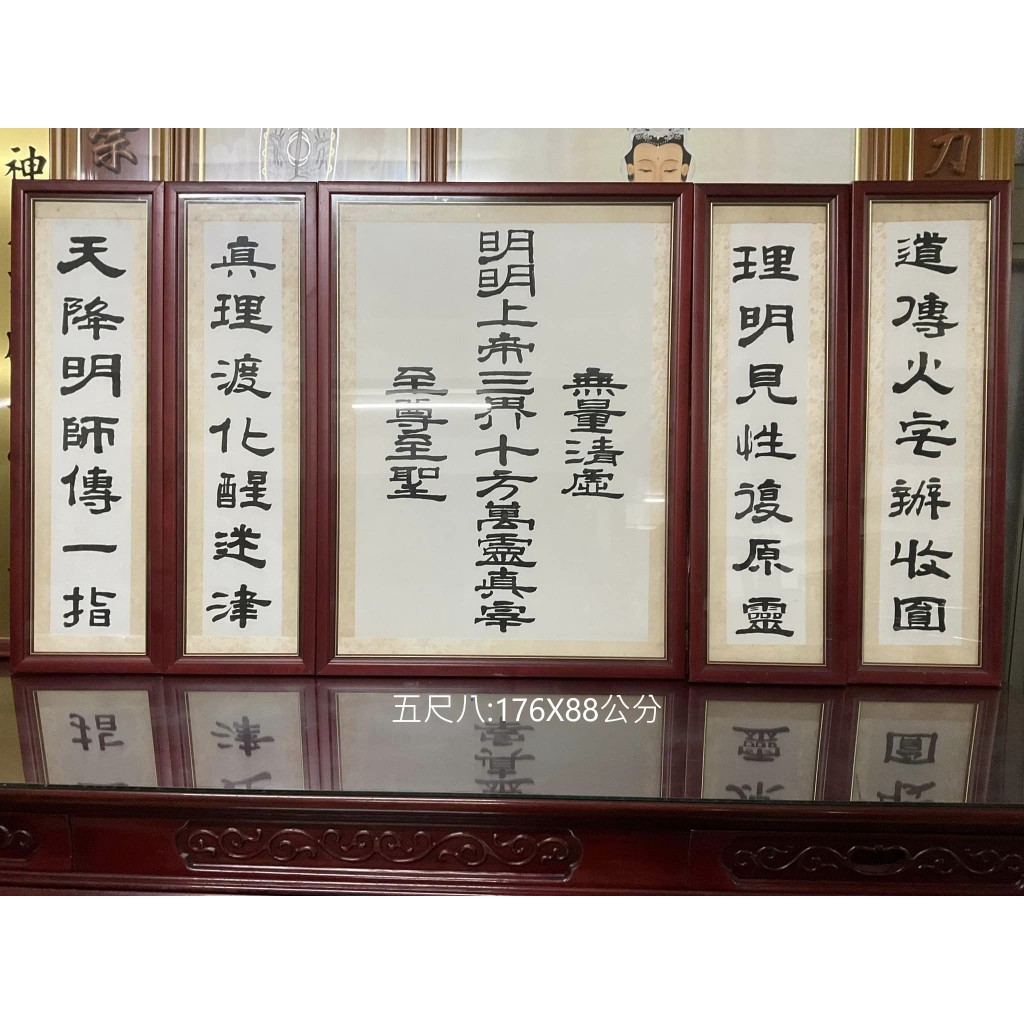 道傳火宅辦收圓
理明見性復原靈
無量清虛
明明上帝三界十方萬靈真宰
至尊至聖
真理渡化醒迷津
天降明師傳一指
神
五尺八:176X88公分